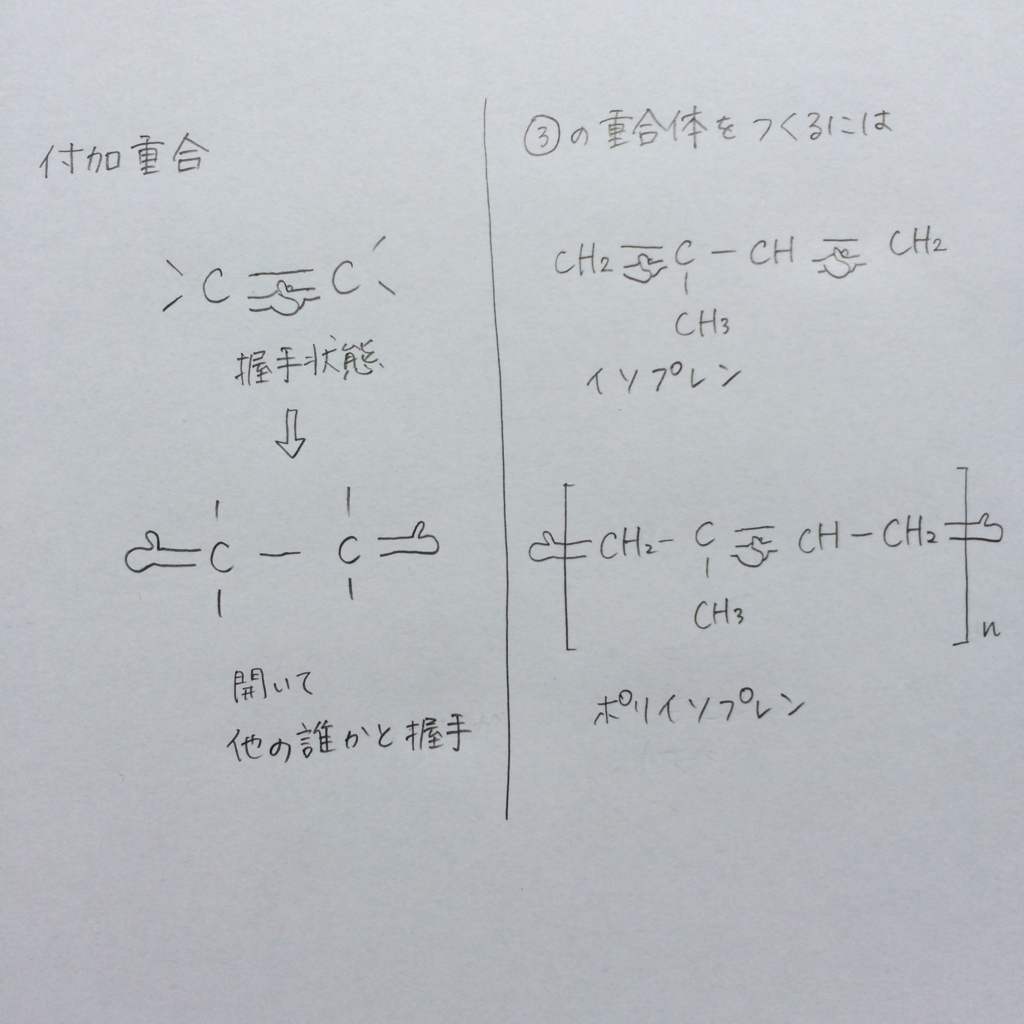 付加重合
C = C
握手状態
⇩
C — C
開いて
他の誰かと握手
③の重合体をつくるには
CH2 = C — CH = CH2
CH3
イソプレン
[ CH2 — C = CH — CH2 ]n
CH3
ポリイソプレン